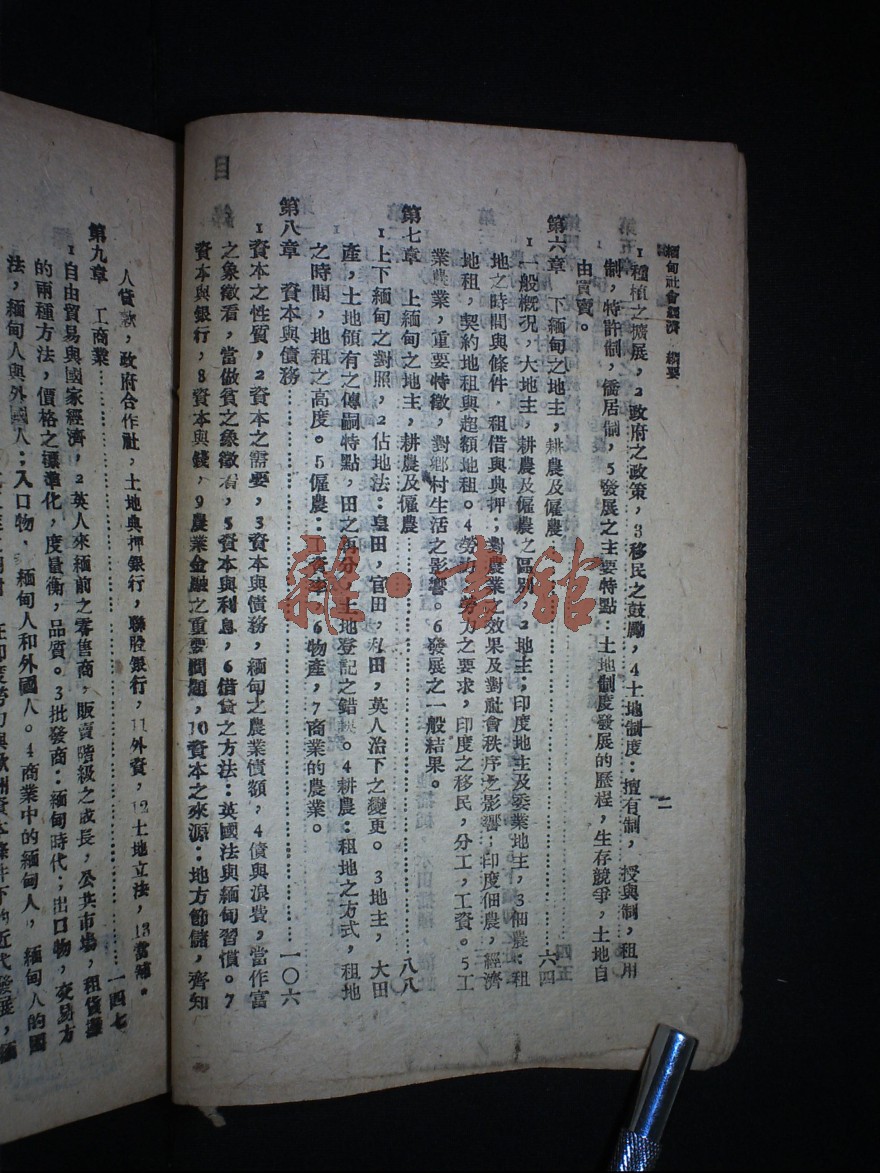 緬甸社會經濟 綱要
二
1種植之擴展,2政府之政策,3移民之鼓勵,4土地制度:擅有制,授與制,租用
制,特許制,僑居制,5發展之主要特點:土地制度發展的歷程,生存競爭,土地自
由買賣。
第六章 下緬甸之地主,耕農及僱農……六四
1一般概况,大地主,耕農及僱農之區別,2地主;印度地主及委業地主,3佃農:租
地之時間與條件,租借與典押;對農業之效果及對社會秩序之影響;印度佃農,經濟
地租,契約地租與超額地租。4勞動:勞力之要求,印度之移民,分工,工資。5工
業農業,重要特徵,對鄉村生活之影響。6發展之一般結果。
第七章 上緬甸之地主,耕農及僱農……八八
1上下緬甸之對照,2佔地法:皇田,官田,私田,英人治下之變更。3地主,大田
產,土地領有之傳嗣特點,田之再分,土地登記之錯 。4耕農:租地之方式,租地
之時間,地租之高度。5僱農:工資率。6物產,7商業的農業。
第八章 資本與債務……一〇六
1資本之性質,2資本之需要,3資本與債務,緬甸之農業債額,4債與浪費,當作富
之象徵看,當做貧之象徵看,5資本與利息,6借貸之方法:英國法與緬甸習慣。7
資本與銀行,8資本與錢,9農業金融之重要問題,10資本之來源:地方節儲,齊知
目 錄
人貸款,政府合作社,土地典押銀行,聯股銀行,11外資,12土地立法,13當舖。
第九章 工商業……一四七
1自由貿易與國家經濟,2英人來緬前之零售商,販賣階級之成長,公共市場,租貨攤
的兩種方法,價格之標準化,度量衡,品質。3批發商:緬甸時代;出口物,交易方
法,緬甸人與外國人;入口物,緬甸人和外國人。4商業中的緬甸人,緬甸人的國
在印度勞力與歐洲資本條件下的近代發展,緬
雜·書館